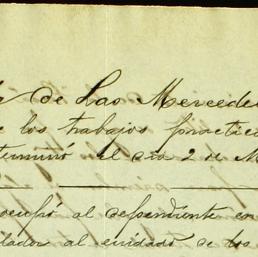 de Las Mercede
e los trabajos practica
terminó el dia 2 de M
ocupó al dependiente en
lador al cuidado de los